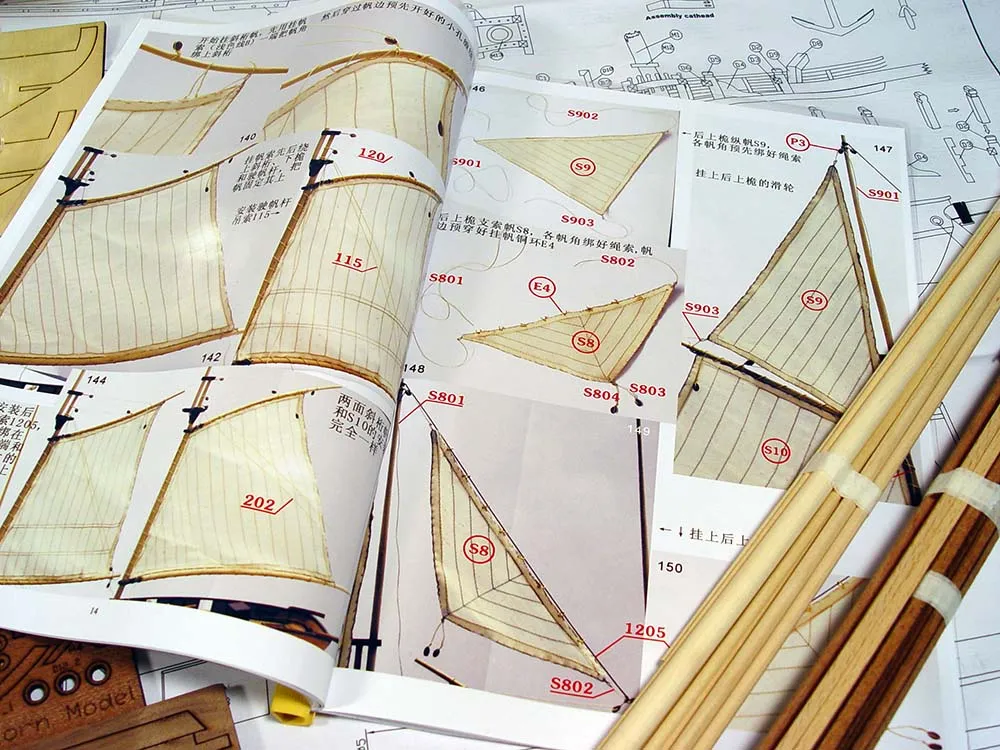 Assembly cathead
M1
M2
D10
D9
D6
D2
D9
D8
C1
D5
D4
开始挂斜桁帆，先用挂帆
然后穿过帆边预先开好的小孔
140
挂帆索先后绕
上斜桁、下桅
和驶帆杆，把
帆固定其上
安装驶帆杆
吊索115→
120
115
142
144
安装后
索1205,
绑在
202
两面斜桁
和S10的
完全一样
14
orn Model
46
S902
S901
S9
S903
后上桅支索帆S8，各帆角绑好绳索,帆
边预穿好挂帆铜环E4
S802
S801
E4
S8
S804
S803
148
S801
149
S8
1205
S802
←后上桅纵帆S9,
各帆角预先绑好绳索
挂上后上桅的滑轮
P3
147
S901
S9
S903
S10
←↓挂上后上
150